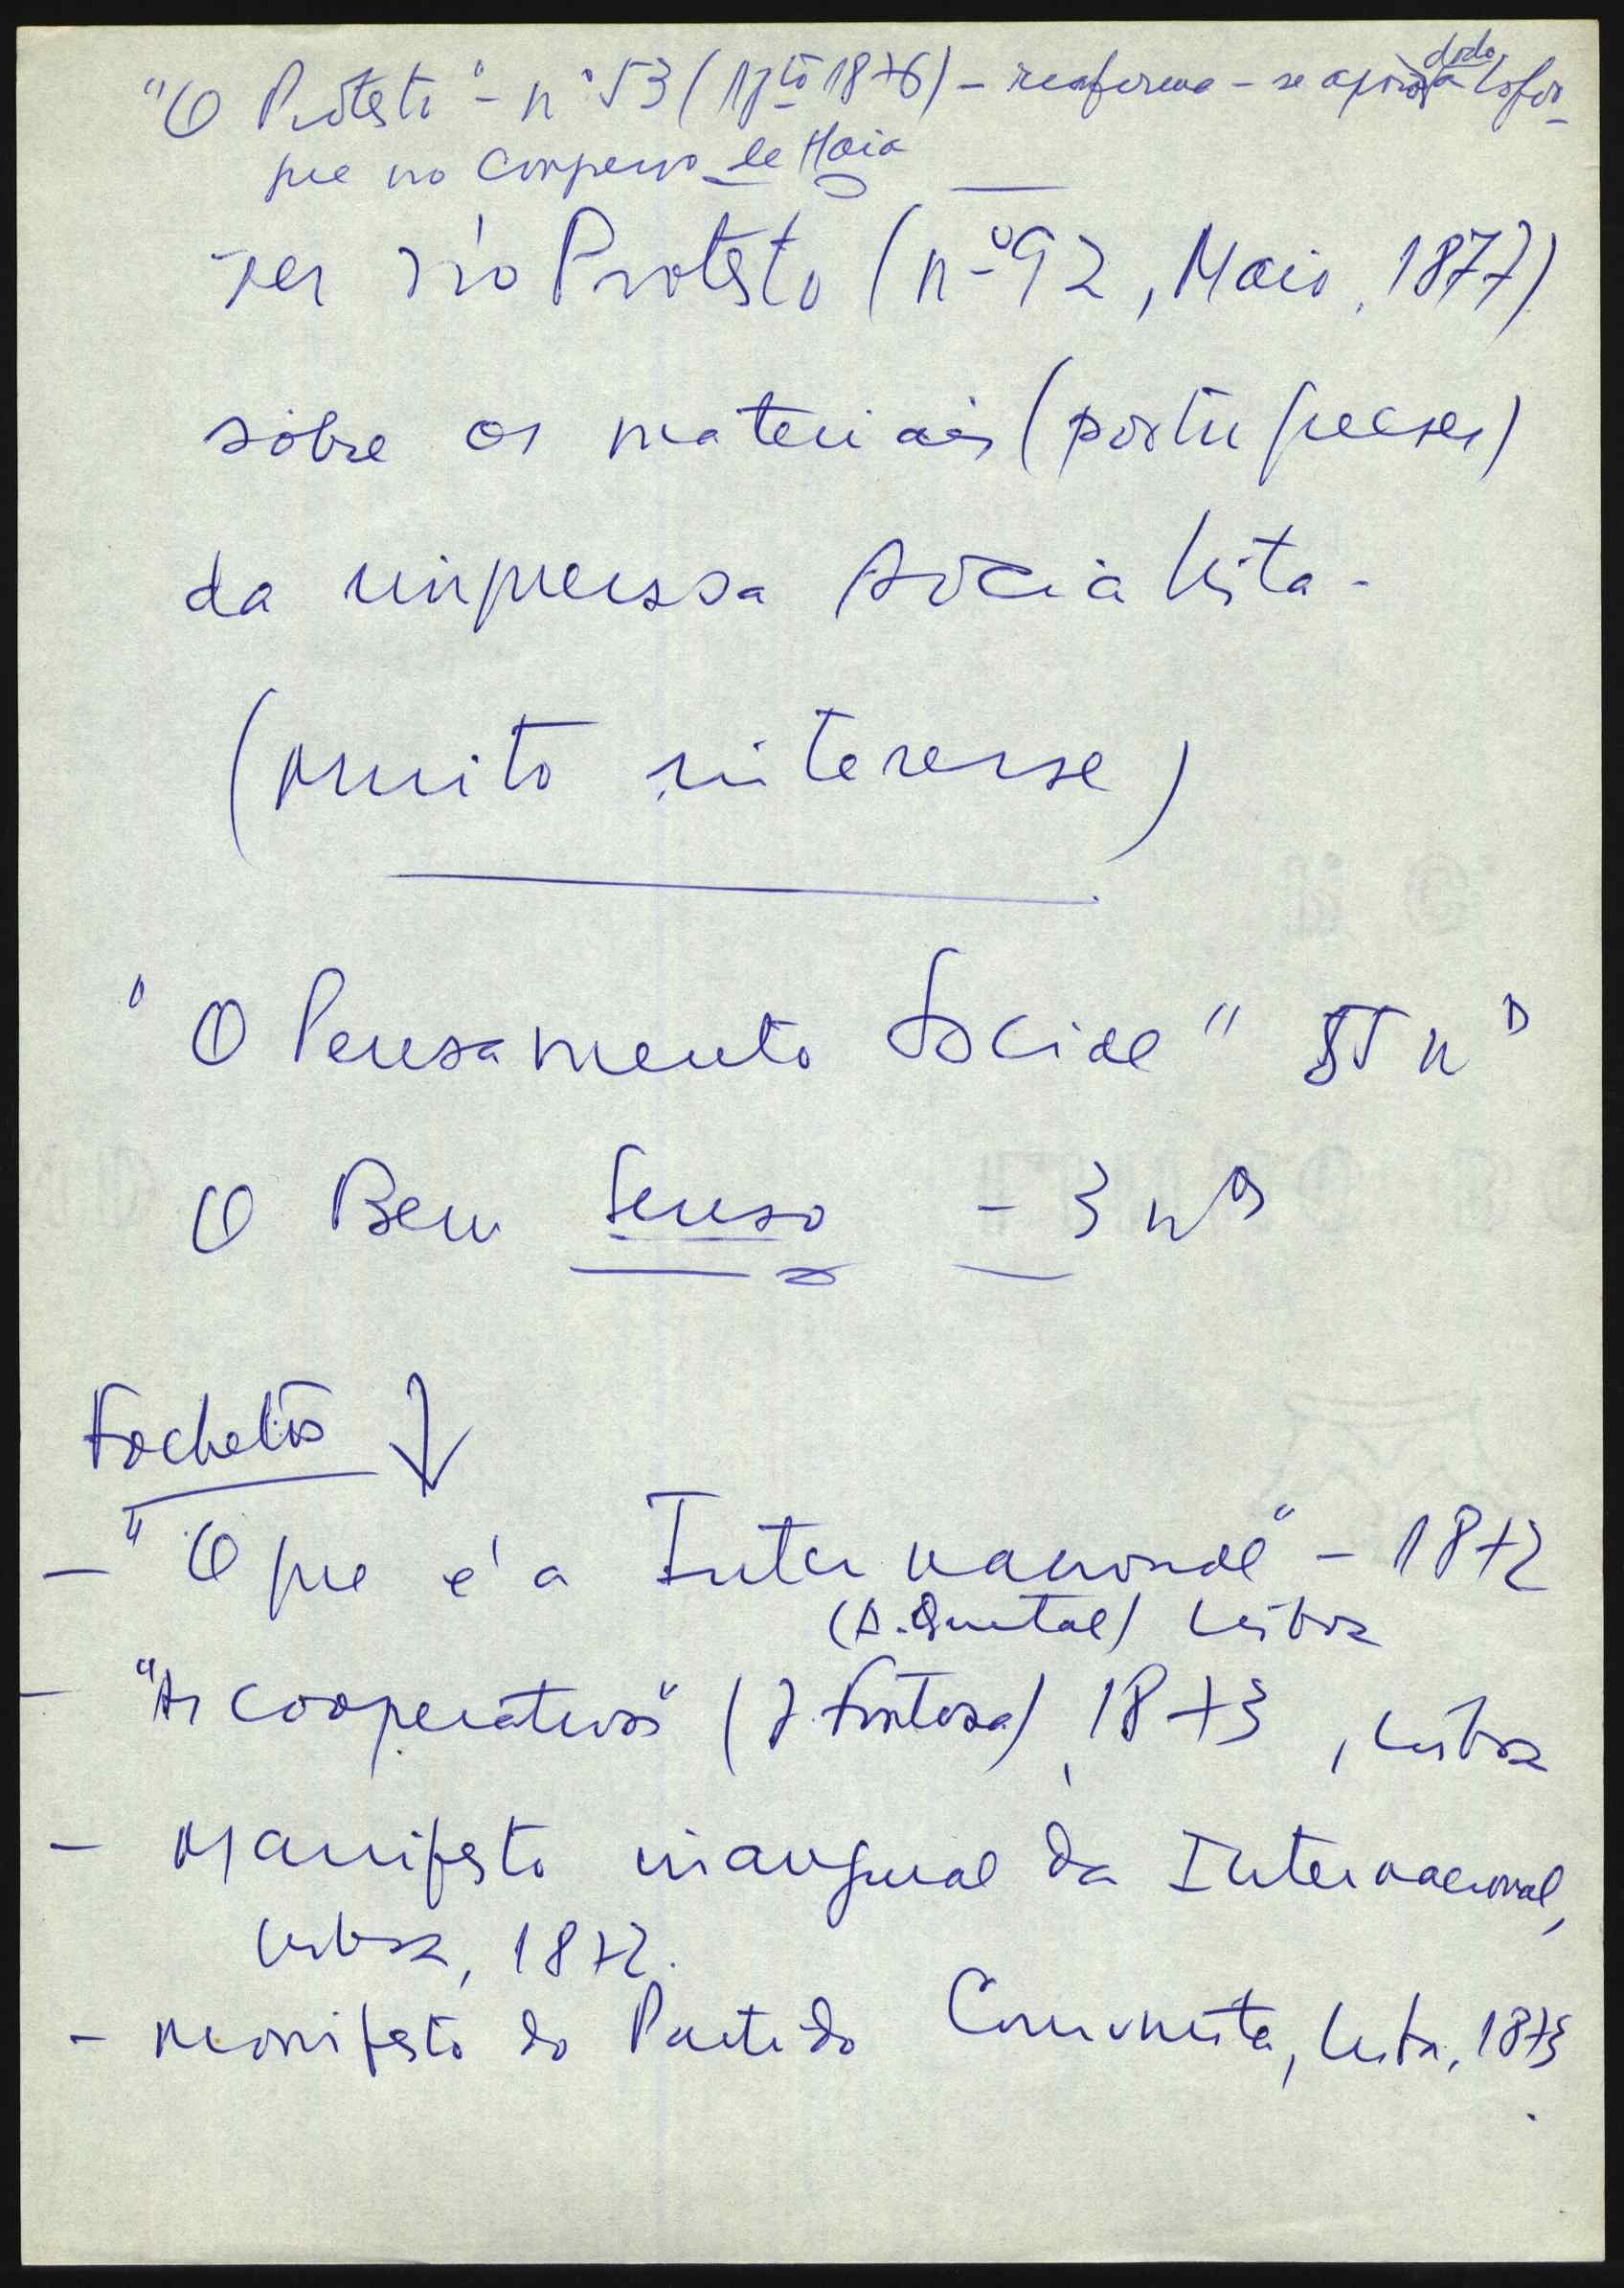 "O Protesto" - nº 53 (Agtº 1876) - reafirma-se apoio dado a Lafar-
gue no Congresso de Haia
Ver n'o Protesto (nº 92, Maio, 1877)
sobre os materiais (portugueses)
da imprensa socialista -
(muito interesse)
"O Pensamento Social" 55 nº
O Bem Senso - 3 nºs
Fochetos ↓
- "O que é a Internacional" - 1872
(A. Quental) Lisboa
- "As cooperativas" (J. Fontana), 1873, Lisboa
- Manifesto inaugural da Internacional,
Lisboa, 1872.
- Manifesto do Partido Comunista, Lisboa, 1873